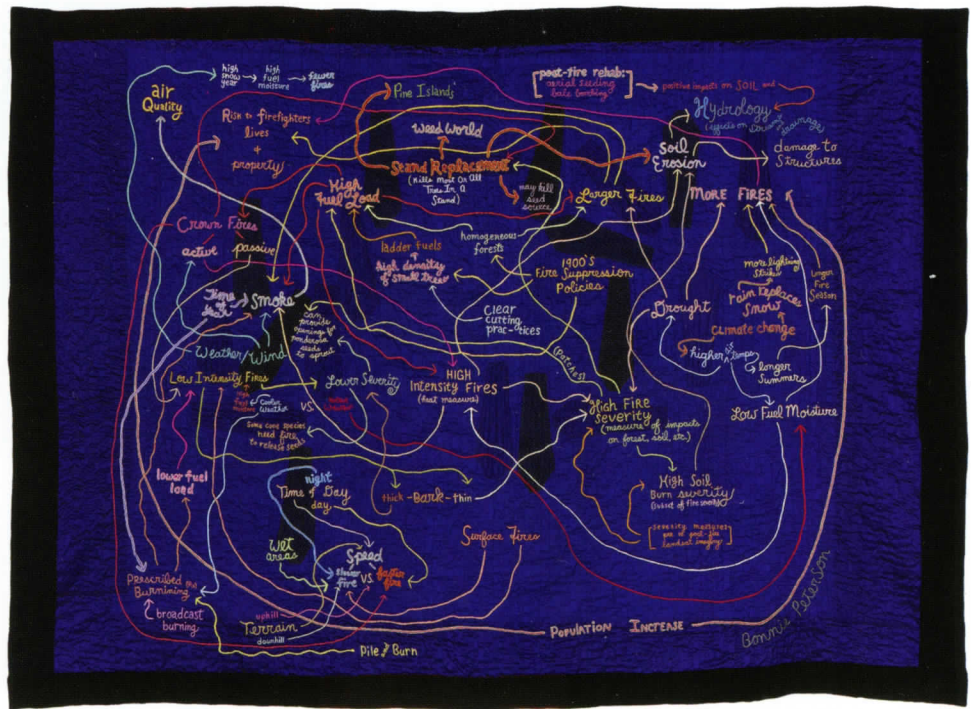 high
snow
year
high
fuel
moisture
fewer
fires
air
Quality
Pine Islands
post-fire rehab:
aerial seeding
bale bombing
positive impacts on SOIL and
Hydrology
(effects on stream drainage)
Risk to firefighters
lives
+
property
Weed World
Stand Replacement
(Kills Most Or All
Trees In A
Stand)
may kill
seed
source
Soil
Erosion
damage to
Structures
High
Fuel Load
Larger Fires
MORE FIRES
Crown Fires
active
passive
ladder fuels
high density
of small trees
homogeneous
forests
1900's
Fire Suppression
Policies
more lightning
strikes
rain replaces
snow
Climate change
Longer
Fire
Season
Time
of
Smoke
can
provide
openings for
ponderosa
seeds
to sprout
Clear
cutting
prac-tices
Drought
higher air temps
longer
Summers
Weather/Wind
(patches)
Low Intensity Fires
Lower Severity
HIGH
Intensity Fires
(heat measure)
High
fuel
moisture
Cooler
Weather
VS.
Some cone species
need fire
to release seeds
High Fire
Severity
(measure of impacts
on forest, soil, etc.)
Low Fuel Moisture
lower fuel
load
night
Time of Day
day
thick-Bark-thin
High Soil
Burn Severity
(subset of fire severity)
severity measures
use of post-fire
Landsat imagery
Surface Fires
Wet
areas
Speed
slower
fire
VS.
faster
fire
Prescribed
Burning
broadcast
burning
uphill
Terrain
downhill
Pile and Burn
POPULATION INCREASE
Bonnie Peterson